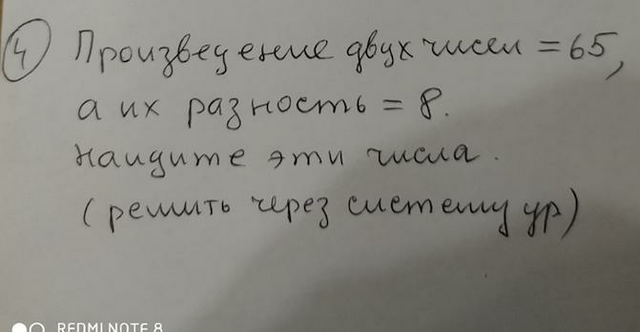 4 Произведение двух чисел = 65,
а их разность = 8.
Наидите эти числа.
(решить через систему ур)
REDMI NOTE 8